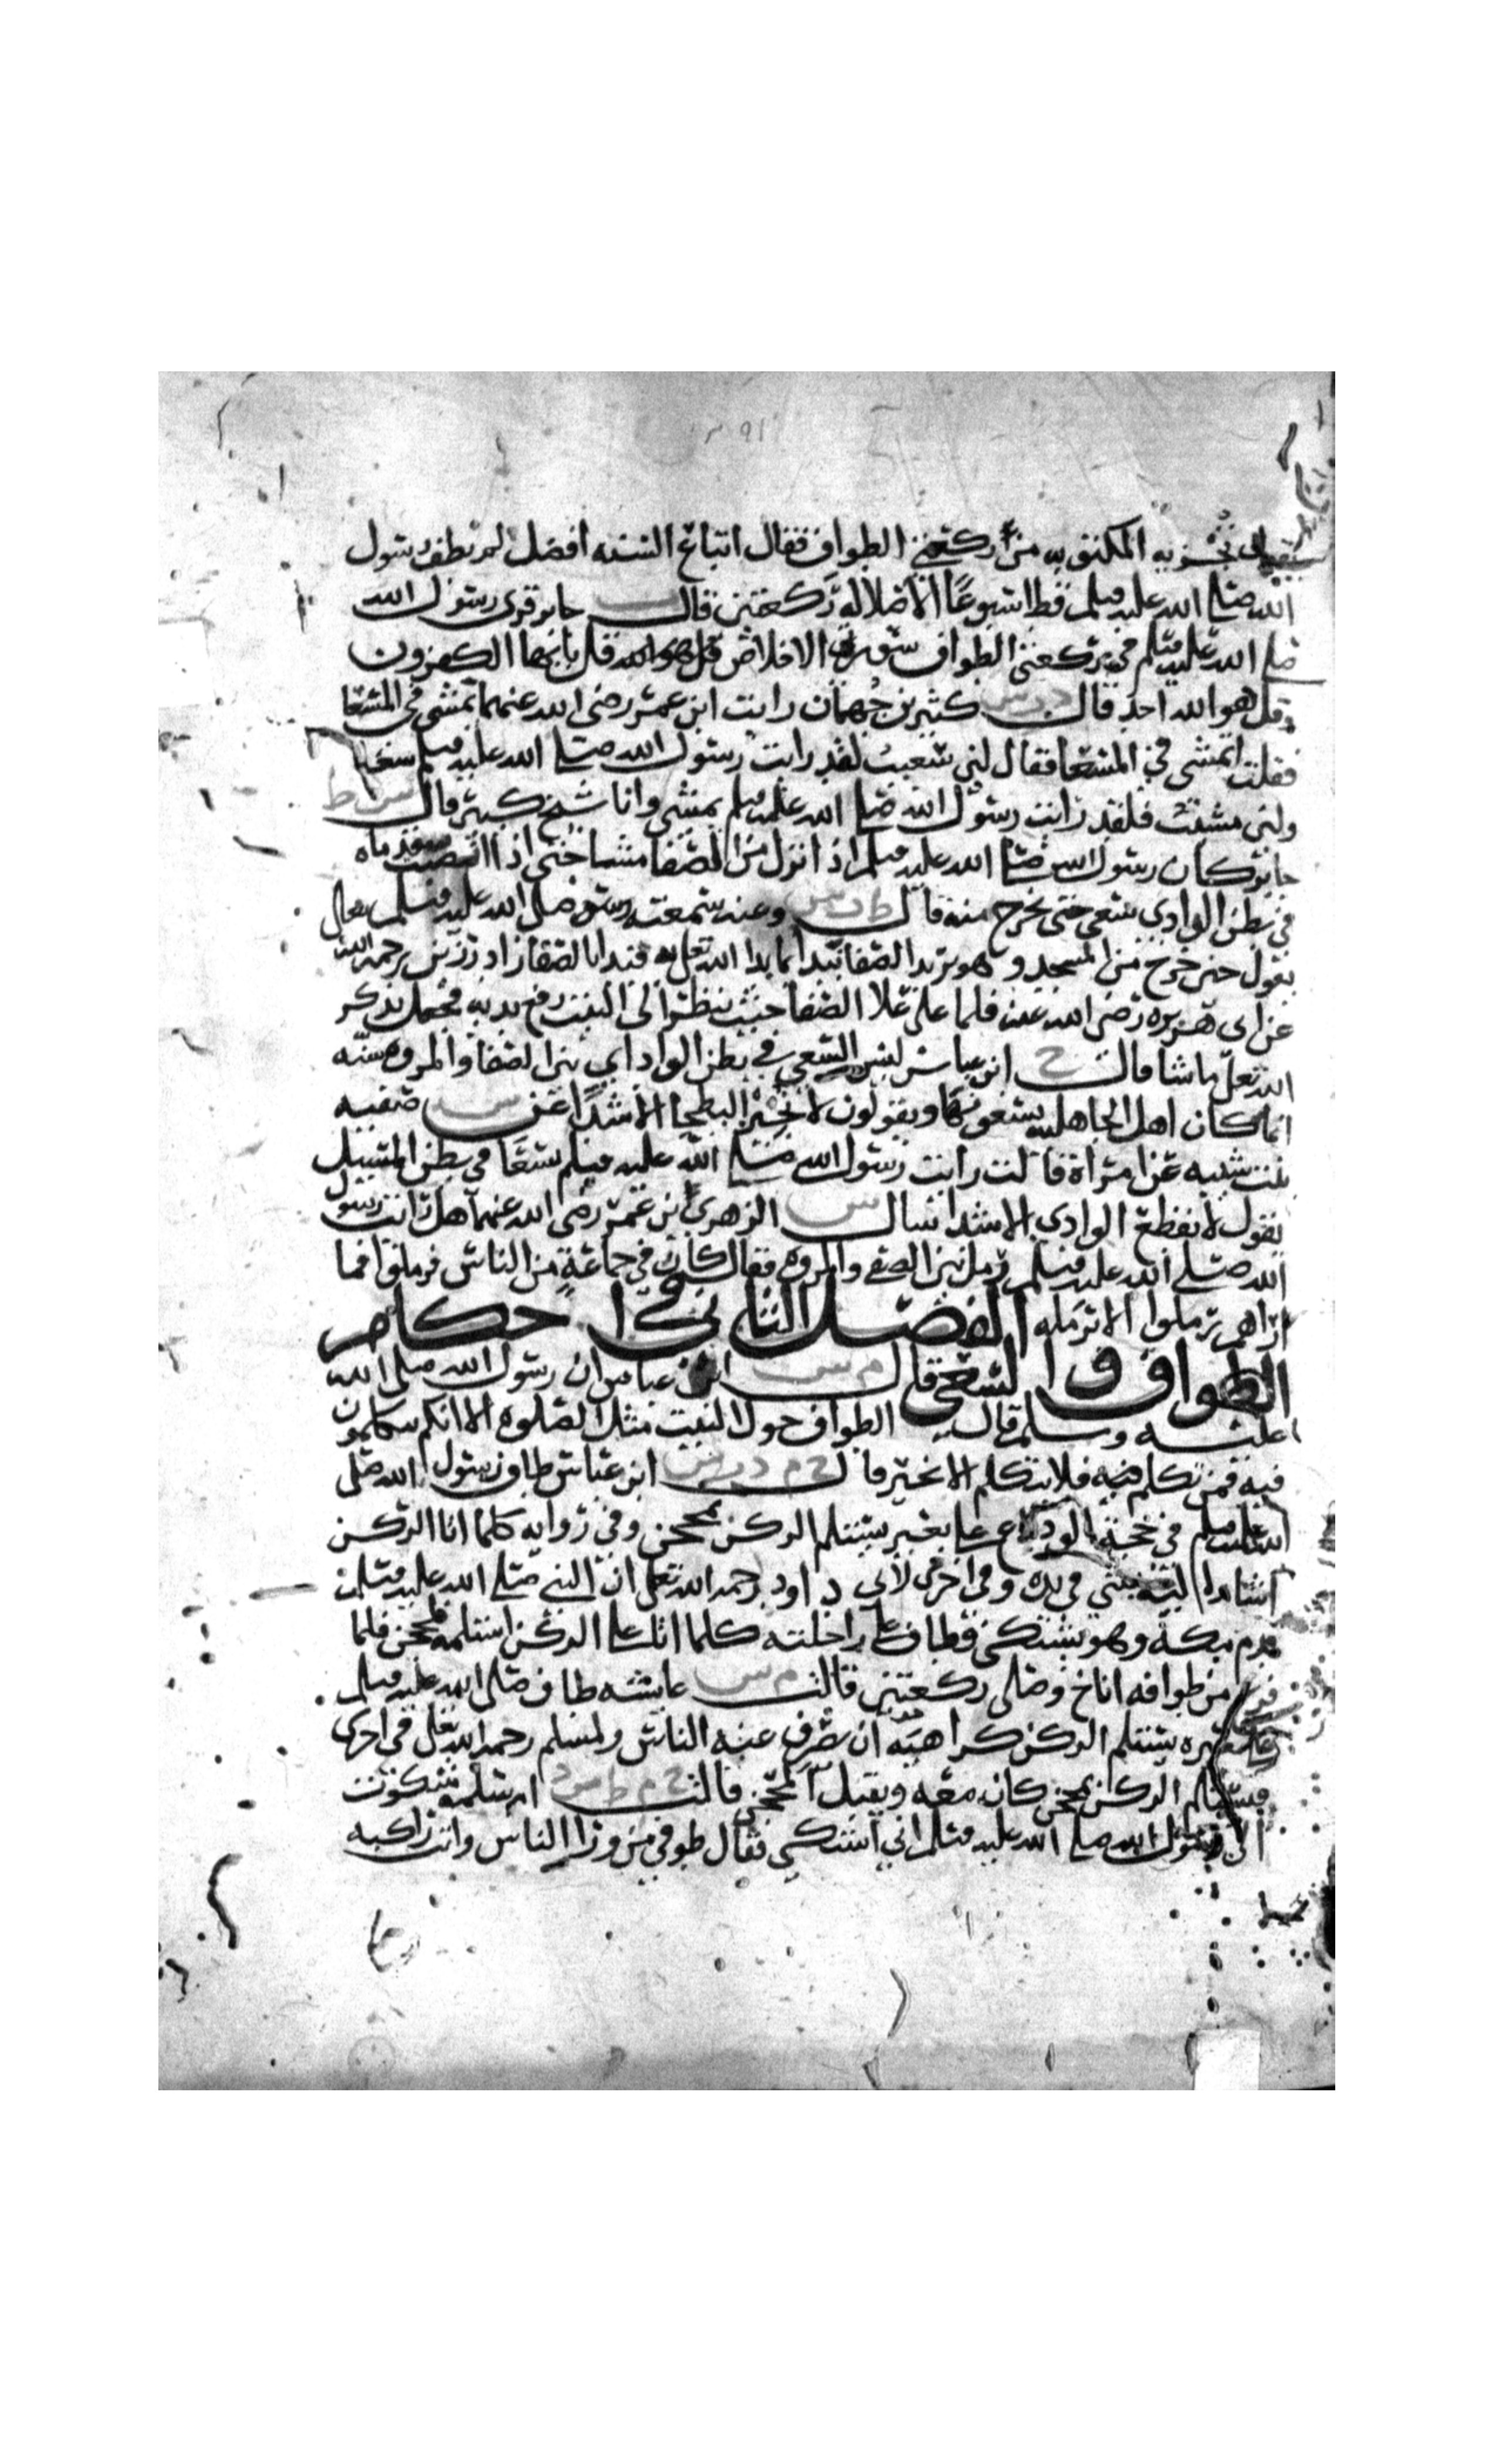 تجزيه المكتوبه من ركعتي الطواف فقال اتباع السنه افضل لم يطف رسول
الله صلى الله عليه وسلم قط اسبوعًا الا صلا له ركعتين قال ت جابر قرى رسول الله
صلى الله عليه وسلم في ركعتي الطواف سورتي الاخلاص قل يا يها الكفرون
وقل هو الله احد قال د ت س كثير بن جُهمان رايت ابن عمر رضي الله عنهما يمشي في المسعا
فقلت اتمشي في المسعا فقال لئن سعيت لقد رايت رسول الله صلى الله عليه وسلم سعا
ولئن مشيت فلقد رايت رسول الله صلى الله عليه وسلم يمشي وانا شيخ كبير قال س ط
جابر كان رسول الله صلى الله عليه وسلم اذا نزل من الصفا مشا حتى اذا انصبت قدماه
في بطن الوادي سعى حتى يخرج منه قال ط ت س وعنه سمعته صلى الله عليه وسلم
يقول حين خرج من المسجد وهو يريد الصفا نبدا بما بدا الله تعلى به فبدا بالصفا زاد رزين رحمه الله
عن ابى هريره رضي الله عنه فلما علا الصفا حيث ينظر الى البيت رفع يديه فجعل يذكر
الله تعلى ما شا قال خ ابن عباس ليس السعي في بطن الوادي بين الصفا والمروه سنّه
انما كان اهل الجاهليه يسعونها ويقولون لا نجيز البطحا الا شدًا عن س صفيه
بنت شيبه عن امراة قالت رايت رسول الله صلى الله عليه وسلم يسعا في بطن المسيل
يقول لا يقطع الوادي الا شدا سال س الزهري ابن عمر رضي الله عنهما هل رايت رسول
الله صلى الله عليه وسلم رمل بين الصفى والمروه فقال كان في جماعةٍ من الناس فرملوا فما
اراهم رملوا الا برمله الفصل الثاني في احكام
الطواف والسعي قال م س ابن عباس ان رسول الله صلى الله
عليه وسلم قال الطواف حول البيت مثل الصلوه الا انكم تتكلمون
فيه فمن تكلم فيه فلا يتكلم الا بخير قال خ م د س ابن عباس طاف رسول الله صلى
الله عليه وسلم في حجة الوداع على بعير يستلم الركن بمحجن وفي روايه كلما اتا الركن
اشار اليه بشي في يده وفي اخرى لابي داود رحمه الله تعلى ان النبي صلى الله عليه وسلم
قدم مكة وهو يشتكي فطاف على راحلته كلما اتى على الركن استلمه بمحجن فلما
فرغ من طوافه اناخ وصلى ركعتين قالت م س عايشه طاف صلى الله عليه وسلم
على بعيره يستلم الركن كراهية ان يصرف عنه الناس ولمسلم رحمه الله تعلى في اخرى
ويستلم الركن بمحجن كان معه ويقبل المحجن قالت خ م ط س د ام سلمه شكوت
الى رسول الله صلى الله عليه وسلم اني اشتكي فقال طوفي من ورا الناس وانت راكبه